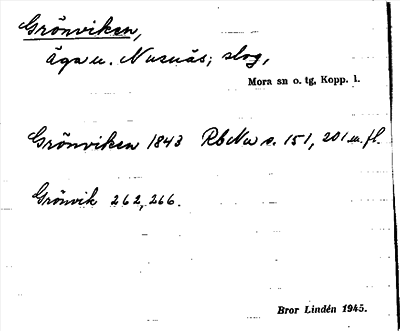 Grönviken,
äga u. Nusnäs; slog,
Mora sn o. tg, Kopp. l.
Grönviken 1843 RbNu s. 151, 201 m. fl.
Grönvik 262, 266.
Bror Lindén 1945.